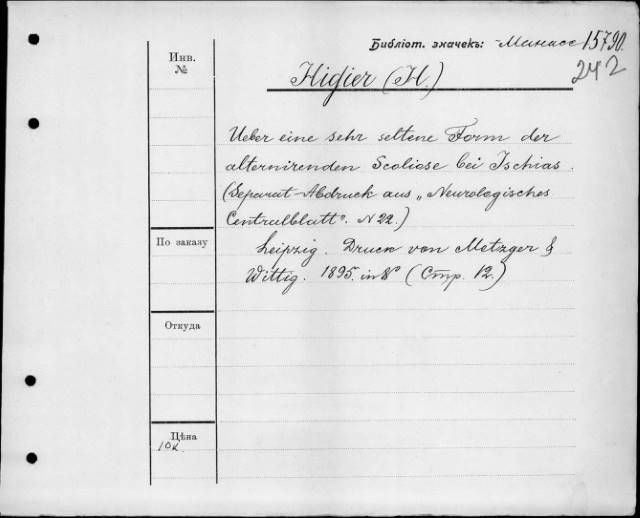 Библіот. значекъ: Манасс 15790.
242
Инв.
№
Higier (H.)
Ueber eine sehr seltene Form der
alternirenden Scoliose bei Ischias.
(Separat-Abdruck aus „Neurologisches
Centralblatt“. N 22.)
По заказу
Leipzig. Druck von Metzger &
Wittig. 1895. in 8° (Стр. 12.)
Откуда
Цѣна
10к.